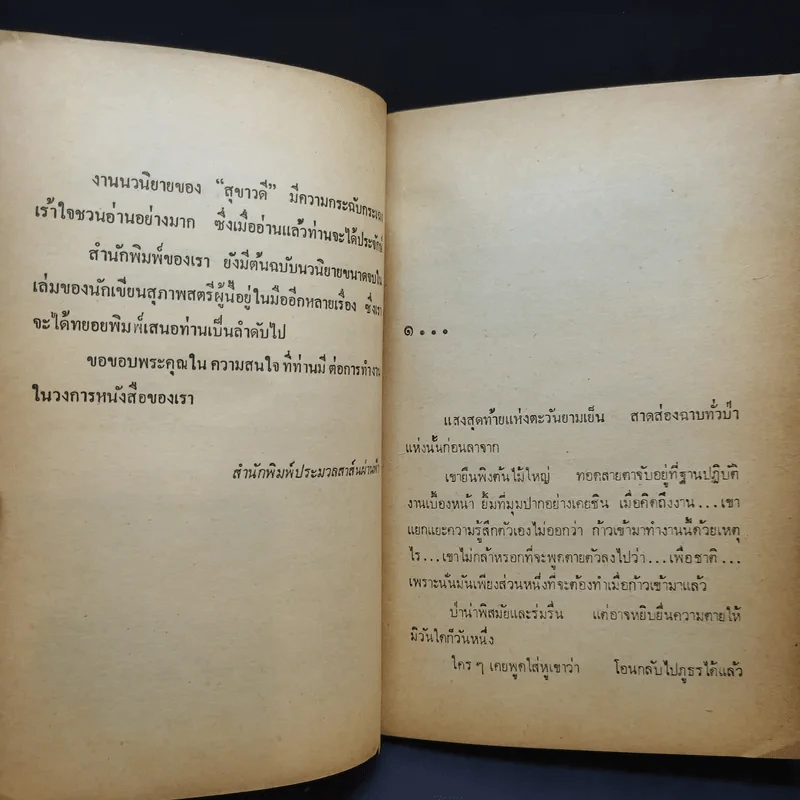 งานนวนิยายของ “สุขาวดี” มีความกระฉับกระเฉง
เร้าใจชวนอ่านอย่างมาก ซึ่งเมื่ออ่านแล้วท่านจะได้ประจักษ์
สำนักพิมพ์ของเรา ยังมีต้นฉบับนวนิยายขนาดจบใน
เล่มของนักเขียนสุภาพสตรีผู้นี้อยู่ในมืออีกหลายเรื่อง ซึ่งเรา
จะได้ทยอยพิมพ์เสนอท่านเป็นลำดับไป
ขอขอบพระคุณใน ความสนใจ ที่ท่านมี ต่อการทำงาน
ในวงการหนังสือของเรา
สำนักพิมพ์ประมวลสาส์นผ่านฟ้า
๑...
แสงสุดท้ายแห่งตะวันยามเย็น สาดส่องฉาบทั่วป่า
แห่งนั้นก่อนลาจาก
เขายืนพิงต้นไม้ใหญ่ ทอดสายตาจับอยู่ที่ฐานปฏิบัติ
งานเบื้องหน้า ยิ้มที่มุมปากอย่างเคยชิน เมื่อคิดถึงงาน...เขา
แยกแยะความรู้สึกตัวเองไม่ออกว่า ก้าวเข้ามาทำงานนี้ด้วยเหตุ
ไร...เขาไม่กล้าหรอกที่จะพูดตายตัวลงไปว่า...เพื่อชาติ...
เพราะนั่นมันเพียงส่วนหนึ่งที่จะต้องทำเมื่อก้าวเข้ามาแล้ว
ป่าน่าพิสมัยและร่มรื่น แต่อาจหยิบยื่นความตายให้
มิวันใดก็วันหนึ่ง
ใคร ๆ เคยพูดใส่หูเขาว่า โอนกลับไปภูธรได้แล้ว